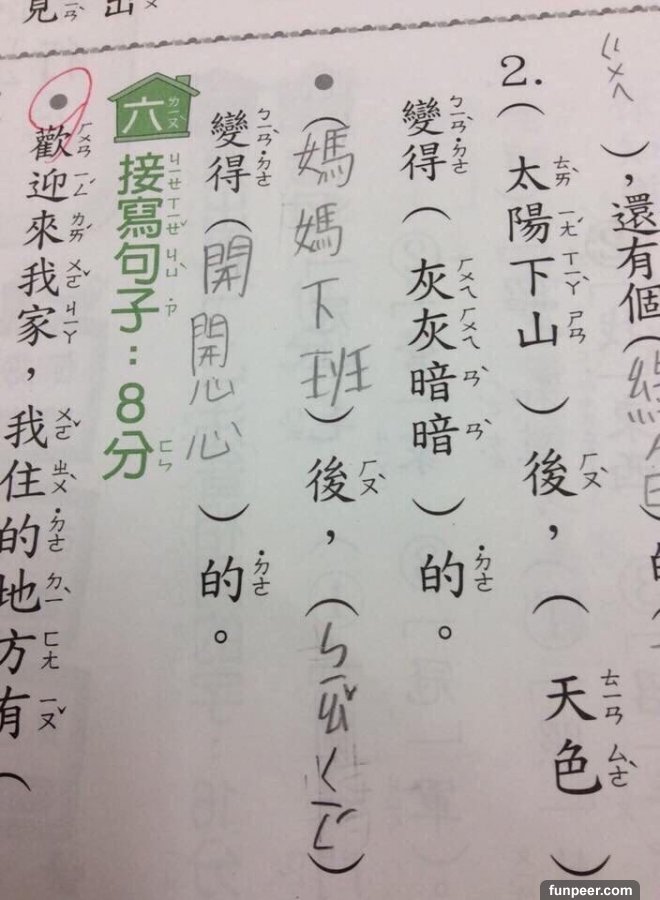 見 出
ㄍㄨㄟ ），還有個（
2.（ 太陽下山 ）後，（ 天色 ）
變得（ 灰灰暗暗 ）的。
●（媽媽下班）後，（ㄅㄧㄠˇㄑㄧㄥˊ）
變得（開開心心）的。
六 接寫句子：8分
●歡迎來我家，我住的地方有（
funpeer.com